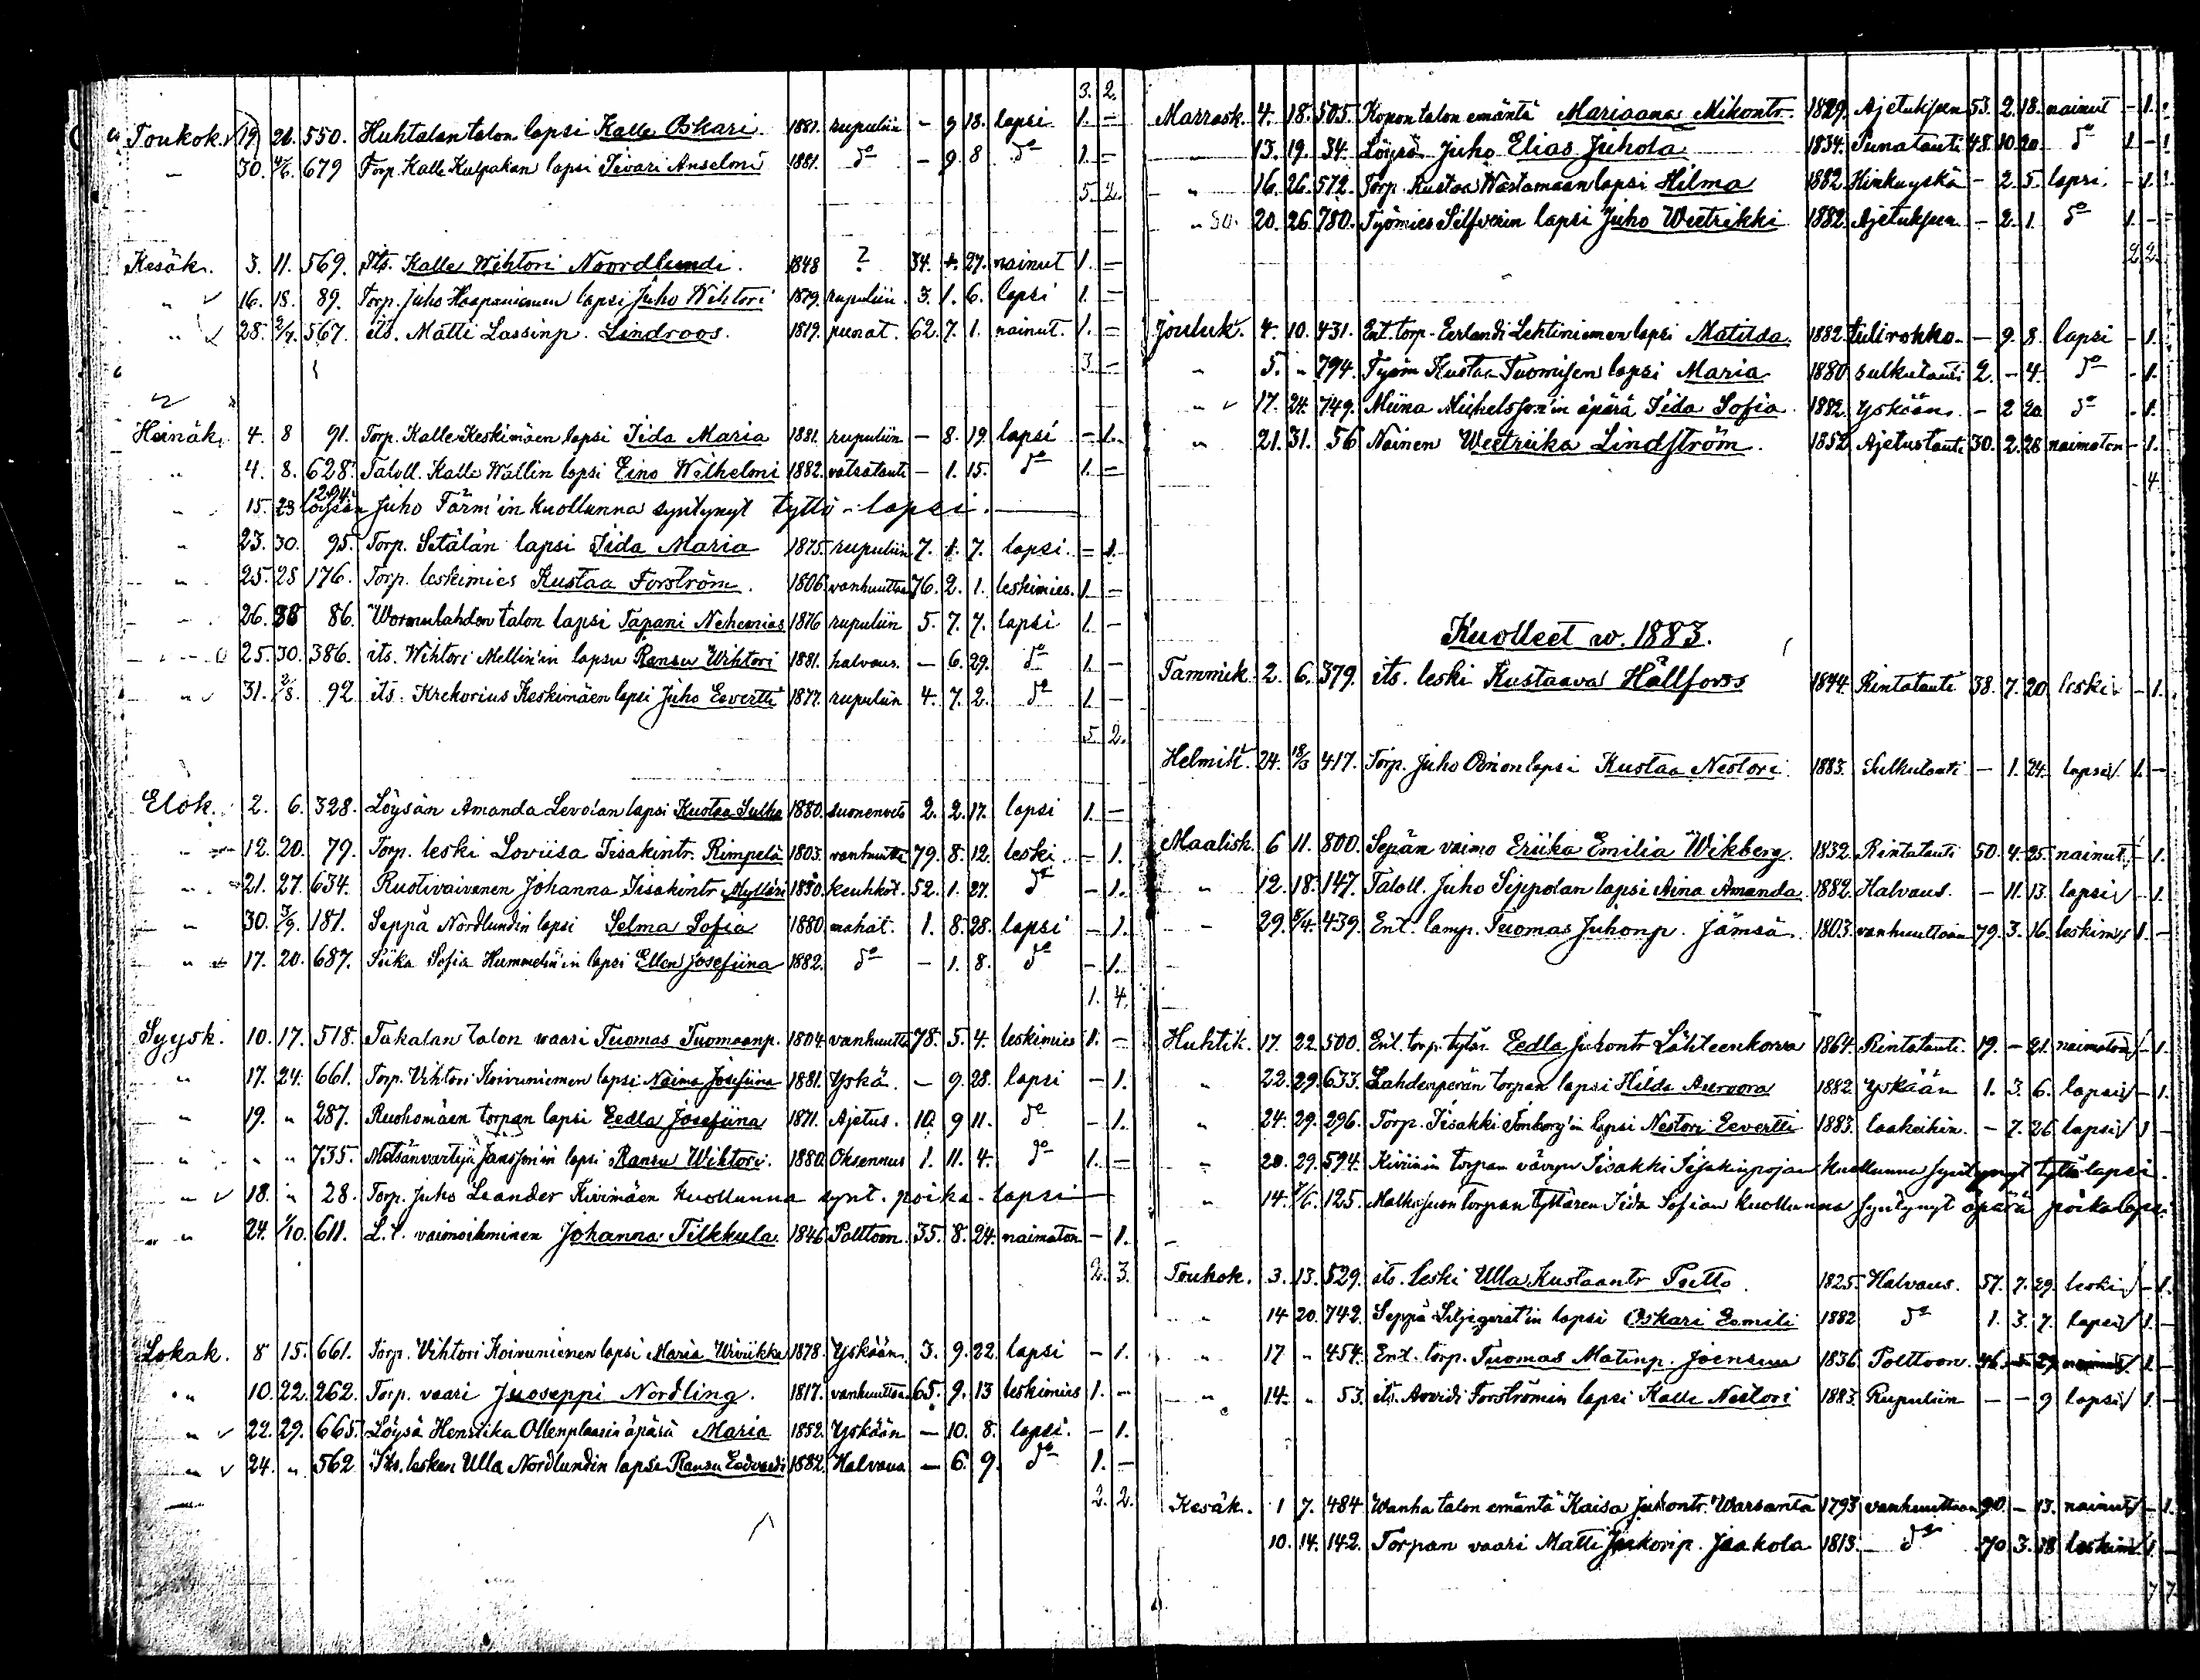 3. 2.
Toukok. 19. 26. 550. Huhtalan talon lapsi Kalle Oskari. 1881. rupuliin - 9 18. lapsi 1. -
„ 30. 4/6. 679 Torp. Kalle Kulpakan lapsi Iivari Anselmi 1881. do - 9. 8 do 1. -
5. 2.
Kesäk. 3. 11. 569. Its. Kalle Wihtori Noordlundi. 1848 ? 34. 27. nainut 1. -
„ 16. 18. 89. Torp. Juho Haapaniemen lapsi Juho Wihtori 1879. rupuliin. 3. 1. 6. lapsi 1. -
„ 28. 2/7. 567. its. Matti Lassinp. Lindroos. 1819. punat. 62. 7. 1. nainut. 1. -
3 -
Heinäk. 4. 8 91. Torp. Kalle Keskimäen lapsi Iida Maria 1881. rupuliin - 8. 19 lapsi - 1.
„ 4. 8. 628. Taloll. Kalle Wallin lapsi Eino Wilhelmi 1882. vatsatauti - 1. 15. do 1. -
„ 15. 23 1294. Löysän Juho Färm'in kuollunna syntynyt tyttö-lapsi.
„ 23. 30. 95. Torp. Setälän lapsi Iida Maria 1875. rupuliin 7. 1. 7. lapsi. - 1.
„ 25. 28 176. Torp. leskimies Kustaa Forström. 1806. vanhuuttaan 76. 2. 1. leskimies. 1. -
„ 26. 86. Wormulahden talon lapsi Tapani Nehemias 1876 rupuliin 5. 7. 7. lapsi 1. -
„ 25. 30. 386. its. Wihtori Mellin'in lapsi Ransu Wihtori 1881. halvaus. - 6. 29. do 1. -
„ 31. 2/8. 92 its. Krekorius Keskimäen lapsi Juho Eevertti 1877. rupuliin 4. 7. 2. do 1. -
5 2.
Elok. 2. 6. 328. Löysän Amanda Levo'an lapsi Kustaa Sulho 1880. suonenveto 2. 2. 17. lapsi 1. -
„ 12. 20. 79. Torp. leski Loviisa Iisakintr. Rimpelä 1803. vanhuutta 79. 8. 12. leski - 1.
„ 21. 27. 634. Ruotivaivanen Johanna Iisakintr Mylläri 1830. keuhkot. 52. 1. 27. do - 1.
„ 30. 3/9. 181. Seppä Nordlundin lapsi Selma Sofia 1880 mahat. 1. 8. 28. lapsi - 1.
„ 17. 20. 687. Siika Sofia Hummelin'in lapsi Ellen Josefiina 1882. do - 1. 8. do - 1.
1. 4.
Syysk. 10. 17. 518. Takalan talon vaari Tuomas Tuomaanp. 1804. vanhuutta 78. 5. 4. leskimies 1. -
„ 17. 24. 661. Torp. Vihtori Koivuniemen lapsi Naima Josefiina 1881. Yskä. - 9. 28. lapsi - 1.
„ 19. „ 287. Ruohomäen torpan lapsi Eedla Josefiina 1871. Ajetus. 10. 9 11. do - 1.
„ „ „ 735. Metsänvartija Jansson'in lapsi Ransu Wihtori. 1880. Oksennus 1. 11. 4. do 1. -
„ 18. „ 28. Torp. Juho Leander Kivimäen kuollunna synt. poika-lapsi
„ 24. 1/10. 611. L.l. vaimoihminen Johanna Tilkkula 1846 Polttoon. 35. 8. 24. naimaton - 1.
2. 3.
Lokak. 8 15. 661. Torp. Wihtori Koivuniemen lapsi Maria Wiviikka 1878. Yskään. 3. 9. 22. lapsi - 1.
„ 10. 22. 262. Torp. vaari Juoseppi Nordling. 1817. vanhuuttaan 65. 9. 13 leskimies 1. -
„ 22. 29. 665. Löysä Henriika Ollenplaasin äpärä Maria 1882. Yskään - 10. 8. lapsi. - 1.
„ 24. „ 562 Its. lesken Ulla Nordlundin lapsi Ransu Eedvardi 1882. Halvaus - 6. 9. do 1. -
2. 2.
Marrask. 4. 18. 505. Kopon talon emäntä Mariaana Mikontr. 1829. Ajetuksen 53. 2. 18. nainut - 1.
„ 13. 19. 34. Löysä Juho Elias Juhola 1834. Punatauti 48. 10 20. do 1 -
„ 16. 26. 572. Torp. Kustaa Wästamaan lapsi Hilma 1882. Hinkuyskä - 2. 5. lapsi. - 1.
„ 30. 20. 26. 780. Työmies Silfverin lapsi Juho Wietrikki 1882. Ajetuksen - 2. 1. do 1. -
2. 2.
Jouluk. 4. 10. 431. Ent. torp. Eerlandi Lehtiniemen lapsi Matilda 1882. tulirokko. - 9. 8. lapsi - 1.
„ 5. „ 794. Työm Kustaa Tuomisen lapsi Maria 1880 sulkutauti 2. - 4. do - 1.
„ 17. 24. 749. Miina Mickelsson'in äpärä Iida Sofia 1882. Yskään. - 2 20. do - 1.
„ 21. 31. 56 Nainen Weetriika Lindström. 1852 Ajetustauti 30. 2. 28 naimaton - 1.
- 4.
Kuolleet w. 1883.
Tammik. 2. 6. 379. its. leski Kustaava Hällfors 1844. Rintatauti 38. 7. 20 leski - 1.
Helmik. 24. 18/3 417. Torp. Juho Orrion lapsi Kustaa Nestori 1883. Sulkutauti - 1. 24. lapsi 1. -
Maalisk. 6 11. 800. Sepän vaimo Eriika Emilia Wikberg. 1832. Rintatauti 50. 4. 25. nainut. - 1.
„ 12. 18. 147. Taloll. Juho Seppolan lapsi Aina Amanda 1882. Halvaus. - 11. 13. lapsi - 1.
„ 29. 8/4. 439. Ent. lamp. Tuomas Juhonp. Jämsä. 1803. vanhuuttaan 79. 3. 16. leskim. 1. -
Huhtik. 17. 22. 500. Ent. torp. tytär. Eedla Juhontr Lähteenkorva 1864. Rintatauti. 19. - 21. naimaton - 1.
„ 22. 29. 633. Lahdenperän torpan lapsi Hilda Aurora 1882 Yskään 1. 3. 6. lapsi - 1.
„ 24. 29. 296. Torp. Iisakki Tönborg'in lapsi Nestori Eevertti 1883. laskeihin. - 7. 26 lapsi 1 -
„ 20. 29. 594. Kiviinin torpan vävyn Iisakki Iisakinpojan kuollunna syntynyt tyttö lapsi.
„ 14. 7/6. 125. Malkasuon torpan tyttären Iida Sofian kuollunna syntynyt äpärä poikalapsi
Toukok. 3. 13. 529. its. leski Ulla Kustaantr Putto. 1825. Halvaus. 57. 7. 29. leski - 1.
„ 14 20. 742. Seppä Liljeqvist'in lapsi Oskari Eemili 1882 do 1. 3. 7. lapsi 1. -
„ 17 „ 454. Ent. torp. Tuomas Matinp. Joensuu 1836. Polttoon. 46. 27. nainut 1. -
„ 14. „ 53. its. Arvidi Forströmin lapsi Kalle Nestori 1883. Rupuliin - - 9 lapsi 1. -
Kesäk. 1 7. 484 Wanha talon emäntä Kaisa Juhontr. Warsanta 1793 vanhuuttaan 90. - 13. nainut - 1.
10. 14. 142. Torpan vaari Matti Jaakonp. Jaakola 1813. do 70. 3. 18 leskim. 1. -
7 7.